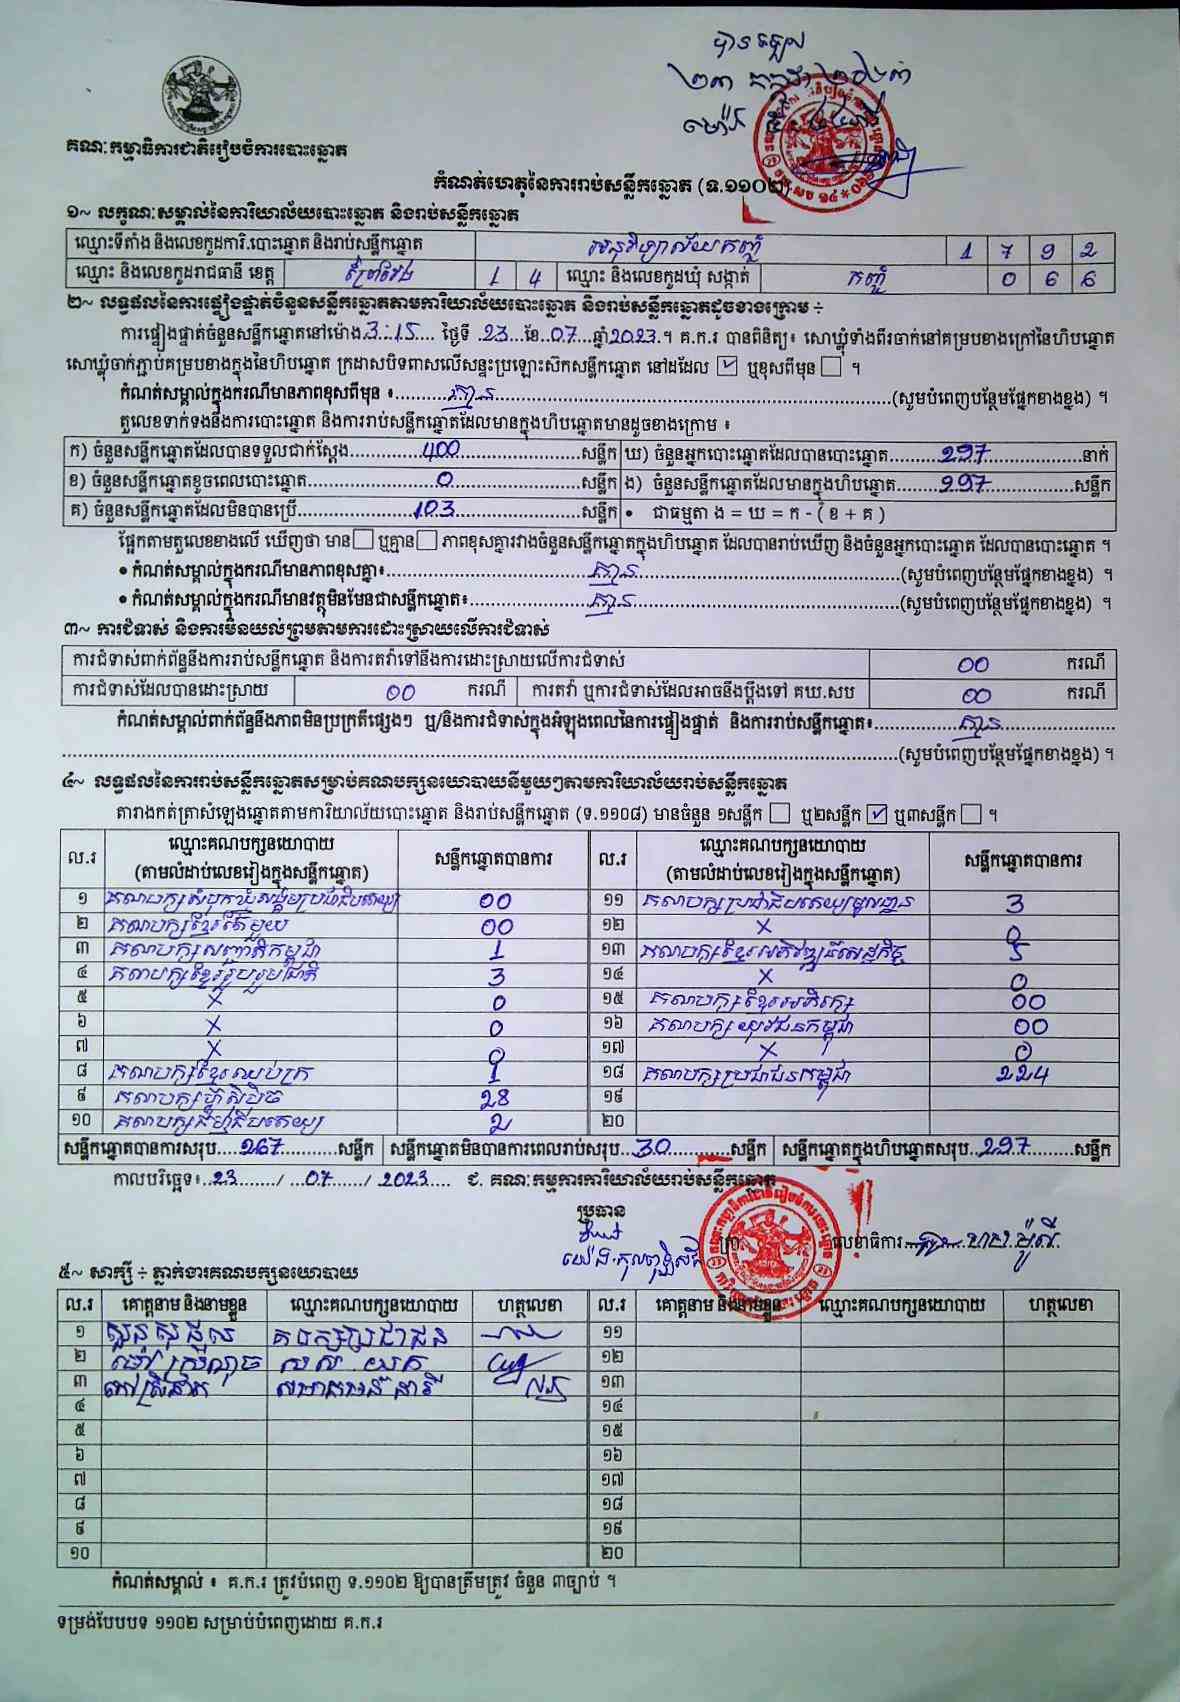 បានទទួល
២៣ កក្កដា ២០២៣
ម៉ោង
គណៈកម្មាធិការជាតិរៀបចំការបោះឆ្នោត
កំណត់ហេតុនៃការរាប់សន្លឹកឆ្នោត (ទ.១១០២)
១~ លក្ខណៈសម្គាល់នៃការិយាល័យបោះឆ្នោត និងរាប់សន្លឹកឆ្នោត
ឈ្មោះទីតាំង និងលេខកូដការិ.បោះឆ្នោត និងរាប់សន្លឹកឆ្នោត អនុវិទ្យាល័យកញ្ជំ 1 7 9 2
ឈ្មោះ និងលេខកូដរាជធានី ខេត្ត ព្រៃវែង 1 4 ឈ្មោះ និងលេខកូដឃុំ សង្កាត់ កញ្ជំ 0 6 6
២~ លទ្ធផលនៃការផ្ទៀងផ្ទាត់ចំនួនសន្លឹកឆ្នោតតាមការិយាល័យបោះឆ្នោត និងរាប់សន្លឹកឆ្នោតដូចខាងក្រោម ÷
ការផ្ទៀងផ្ទាត់ចំនួនសន្លឹកឆ្នោតនៅម៉ោង 3:15 ថ្ងៃទី 23 ខែ 07 ឆ្នាំ 2023 ។ គ.ក.រ បានពិនិត្យ៖ សោឃ្លុំទាំងពីរចាក់នៅគម្របខាងក្រៅនៃហិបឆ្នោត
សោឃ្លុំចាក់ភ្ជាប់គម្របខាងក្នុងនៃហិបឆ្នោត ក្រដាសបិទពាសលើសន្ទះប្រឡោះស៊កសន្លឹកឆ្នោត នៅដដែល ☑ ឬខុសពីមុន ☐ ។
កំណត់សម្គាល់ក្នុងករណីមានភាពខុសពីមុន ៖ គ្មាន (សូមបំពេញបន្ថែមផ្នែកខាងខ្នង) ។
តួលេខទាក់ទងនឹងការបោះឆ្នោត និងការរាប់សន្លឹកឆ្នោតដែលមានក្នុងហិបឆ្នោតមានដូចខាងក្រោម ៖
ក) ចំនួនសន្លឹកឆ្នោតដែលបានទទួលជាក់ស្តែង 400 សន្លឹក ឃ) ចំនួនអ្នកបោះឆ្នោតដែលបានបោះឆ្នោត 297 នាក់
ខ) ចំនួនសន្លឹកឆ្នោតខូចពេលបោះឆ្នោត 0 សន្លឹក ង) ចំនួនសន្លឹកឆ្នោតដែលមានក្នុងហិបឆ្នោត 297 សន្លឹក
គ) ចំនួនសន្លឹកឆ្នោតដែលមិនបានប្រើ 103 សន្លឹក • ជាធម្មតា ង = ឃ = ក - ( ខ + គ )
ផ្អែកតាមតួលេខខាងលើ ឃើញថា មាន ☐ ឬគ្មាន ☐ ភាពខុសគ្នារវាងចំនួនសន្លឹកឆ្នោតក្នុងហិបឆ្នោត ដែលបានរាប់ឃើញ និងចំនួនអ្នកបោះឆ្នោត ដែលបានបោះឆ្នោត ។
• កំណត់សម្គាល់ក្នុងករណីមានភាពខុសគ្នា៖ គ្មាន (សូមបំពេញបន្ថែមផ្នែកខាងខ្នង) ។
• កំណត់សម្គាល់ក្នុងករណីមានវត្ថុមិនមែនជាសន្លឹកឆ្នោត៖ គ្មាន (សូមបំពេញបន្ថែមផ្នែកខាងខ្នង) ។
៣~ ការជំទាស់ និងការមិនយល់ព្រមតាមការដោះស្រាយលើការជំទាស់
ការជំទាស់ពាក់ព័ន្ធនឹងការរាប់សន្លឹកឆ្នោត និងការតវ៉ាទៅនឹងការដោះស្រាយលើការជំទាស់ 00 ករណី
ការជំទាស់ដែលបានដោះស្រាយ 00 ករណី ការតវ៉ា ឬការជំទាស់ដែលអាចនឹងប្តឹងទៅ គឃ.សប 00 ករណី
កំណត់សម្គាល់ពាក់ព័ន្ធនឹងភាពមិនប្រក្រតីផ្សេងៗ ឬ/និងការជំទាស់ក្នុងអំឡុងពេលនៃការផ្ទៀងផ្ទាត់ និងការរាប់សន្លឹកឆ្នោត៖ គ្មាន
(សូមបំពេញបន្ថែមផ្នែកខាងខ្នង) ។
៤~ លទ្ធផលនៃការរាប់សន្លឹកឆ្នោតសម្រាប់គណបក្សនយោបាយនីមួយៗតាមការិយាល័យរាប់សន្លឹកឆ្នោត
តារាងកត់ត្រាសំឡេងឆ្នោតតាមការិយាល័យបោះឆ្នោត និងរាប់សន្លឹកឆ្នោត (ទ.១១០៨) មានចំនួន ១សន្លឹក ☐ ឬ២សន្លឹក ☑ ឬ៣សន្លឹក ☐ ។
ល.រ ឈ្មោះគណបក្សនយោបាយ (តាមលំដាប់លេខរៀងក្នុងសន្លឹកឆ្នោត) សន្លឹកឆ្នោតបានការ ល.រ ឈ្មោះគណបក្សនយោបាយ (តាមលំដាប់លេខរៀងក្នុងសន្លឹកឆ្នោត) សន្លឹកឆ្នោតបានការ
១ គណបក្សសំបុកឃ្មុំសង្គមប្រជាធិបតេយ្យ 00 ១១ គណបក្សប្រជាធិបតេយ្យមូលដ្ឋាន 3
២ គណបក្សខ្មែរតែមួយ 00 ១២ X 0
៣ គណបក្សសញ្ជាតិកម្ពុជា 1 ១៣ គណបក្សខ្មែរអភិវឌ្ឍន៍សេដ្ឋកិច្ច 5
៤ គណបក្សខ្មែររួបរួមជាតិ 3 ១៤ X 0
៥ X 0 ១៥ គណបក្សខ្មែរអភិរក្ស 00
៦ X 0 ១៦ គណបក្សយុវជនកម្ពុជា 00
៧ X 0 ១៧ X 0
៨ គណបក្សខ្មែរឈប់ក្រ 1 ១៨ គណបក្សប្រជាជនកម្ពុជា 224
៩ គណបក្សហ៊្វុនស៊ិនប៉ិច 28 ១៩
១០ គណបក្សធម្មាធិបតេយ្យ 2 ២០
សន្លឹកឆ្នោតបានការសរុប 267 សន្លឹក សន្លឹកឆ្នោតមិនបានការពេលរាប់សរុប 30 សន្លឹក សន្លឹកឆ្នោតក្នុងហិបឆ្នោតសរុប 297 សន្លឹក
កាលបរិច្ឆេទ៖ 23 / 07 / 2023 ជ. គណៈកម្មការការិយាល័យរាប់សន្លឹកឆ្នោត
ប្រធាន
លេខាធិការ
៥~ សាក្សី ÷ ភ្នាក់ងារគណបក្សនយោបាយ
ល.រ គោត្តនាម និងនាមខ្លួន ឈ្មោះគណបក្សនយោបាយ ហត្ថលេខា ល.រ គោត្តនាម និងនាមខ្លួន ឈ្មោះគណបក្សនយោបាយ ហត្ថលេខា
១ គ បក្សប្រជាជន ១១
២ ស ស យ ក ១២
៣ សមាគមន៍ នារី ១៣
៤ ១៤
៥ ១៥
៦ ១៦
៧ ១៧
៨ ១៨
៩ ១៩
១០ ២០
កំណត់សម្គាល់ ៖ គ.ក.រ ត្រូវបំពេញ ទ.១១០២ ឱ្យបានត្រឹមត្រូវ ចំនួន ៣ច្បាប់ ។
ទម្រង់បែបបទ ១១០២ សម្រាប់បំពេញដោយ គ.ក.រ